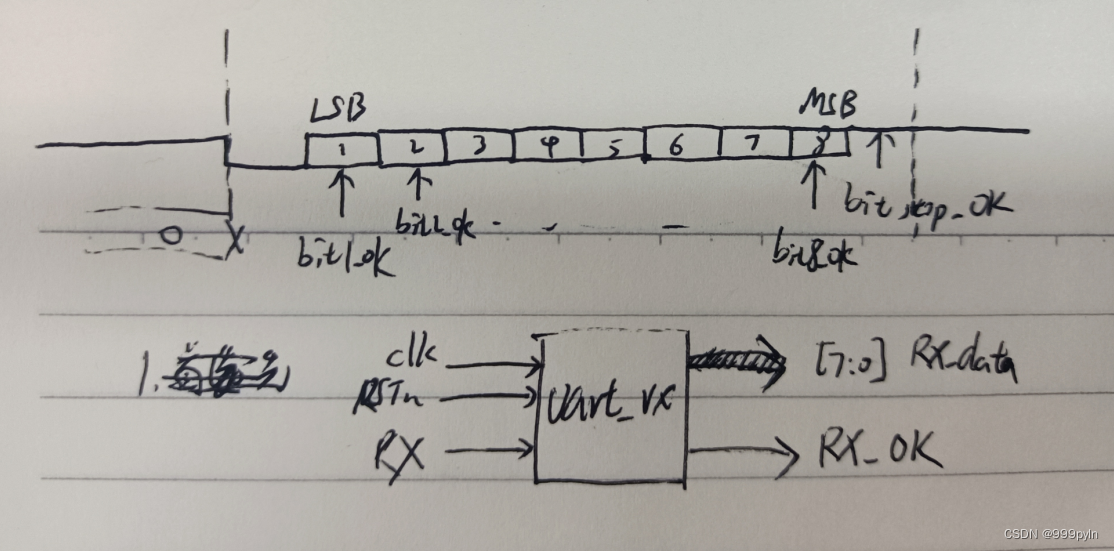 LSB MSB
1 2 3 4 5 6 7 8
bit1_ok bit2_ok - - - bit8_ok bit_stop_OK
0 X
1.
clk [7:0] RX_data
RSTn uart_rx
RX RX_OK
CSDN @999pyln